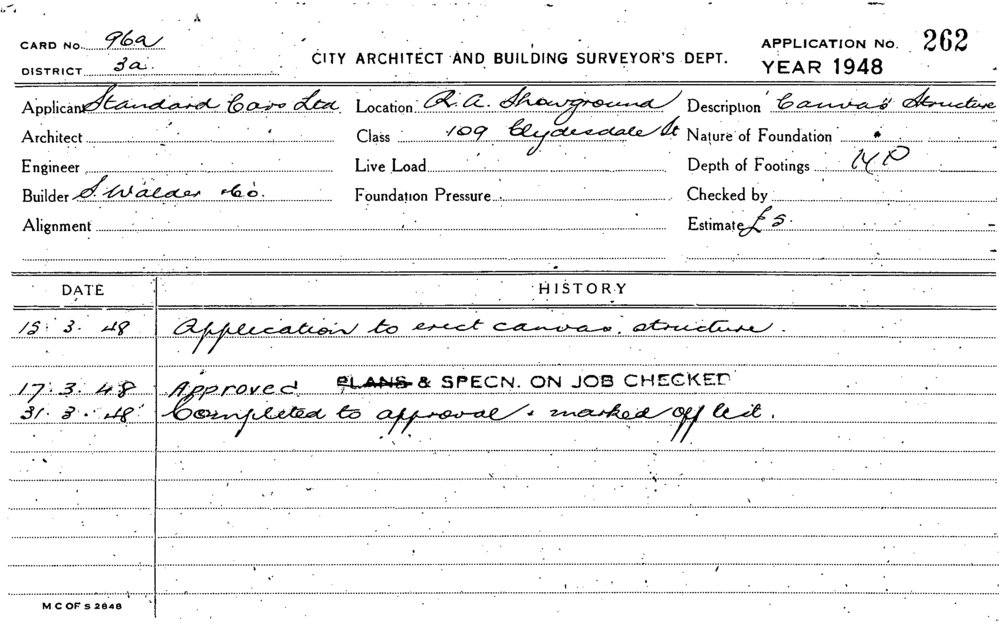 CARD NO. 96a
DISTRICT 3a
CITY ARCHITECT AND BUILDING SURVEYOR'S DEPT.
APPLICATION NO. 262
YEAR 1948
Applicant Standard Cars Ltd Location R.A. Showground Description Canvas Structure
Architect Class 109 Clydesdale St Nature of Foundation
Engineer Live Load Depth of Footings
Builder S. Walder & Co. Foundation Pressure Checked by
Alignment Estimate £ 5.
DATE HISTORY
15. 3. 48 Application to erect canvas structure.
17. 3. 48 Approved PLANS & SPECN. ON JOB CHECKED
31. 3. 48 Completed to approval & marked off list.
M.C OF S 2648